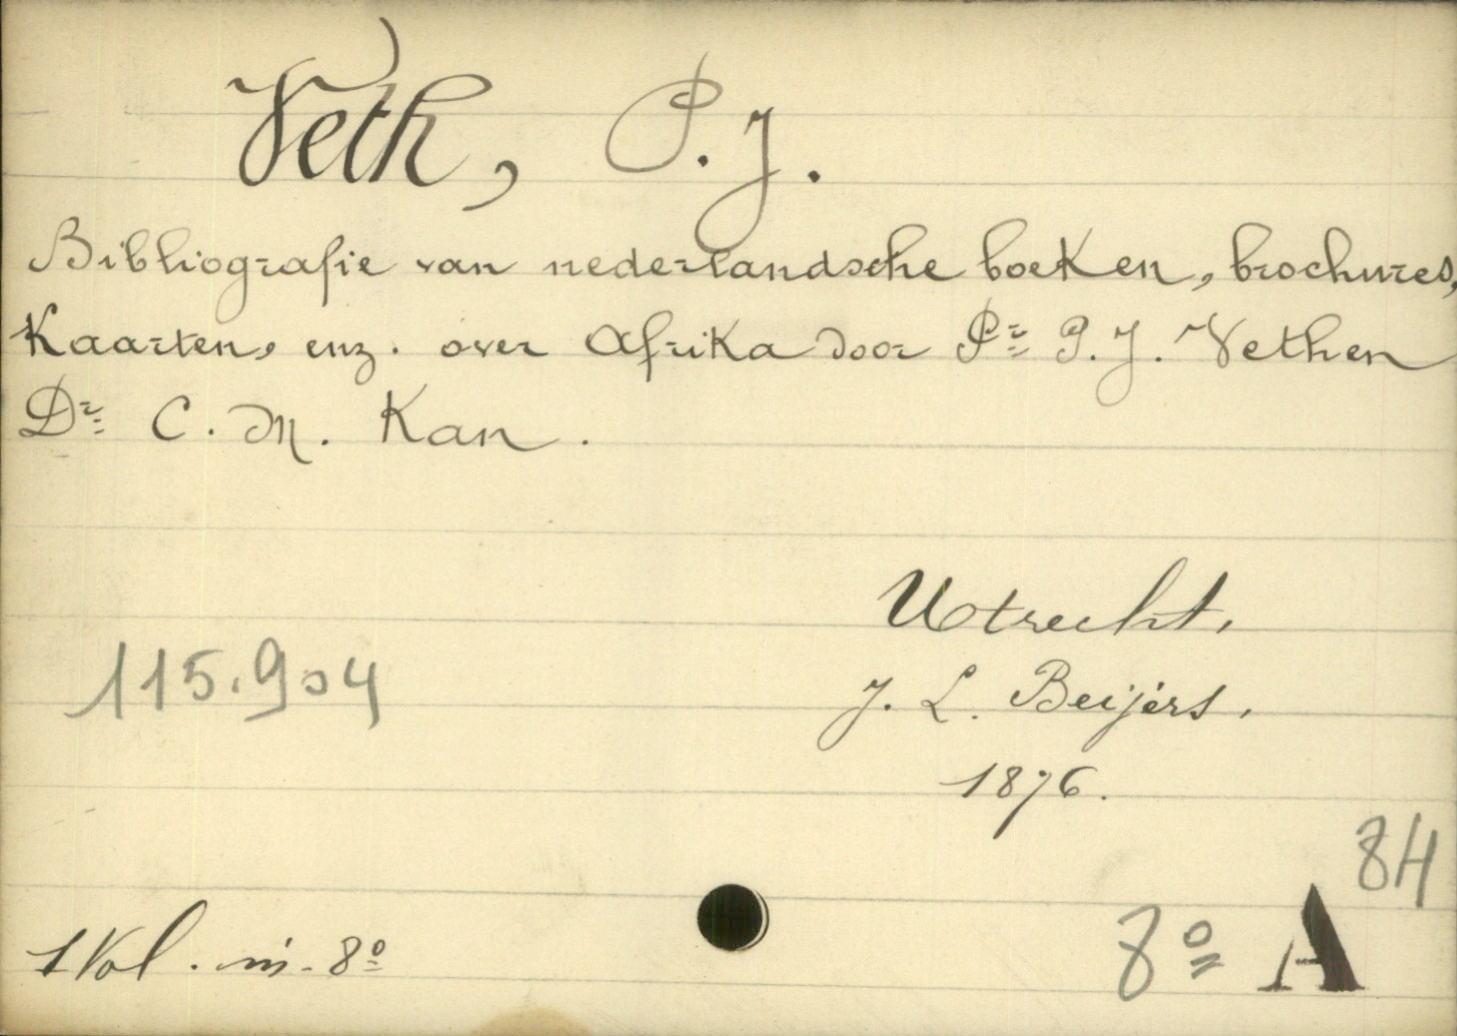 Veth, P. J.
Bibliografie van nederlandsche boeken, brochures,
Kaarten, enz. over Afrika door Pr P. J. Veth en
Dr C. M. Kan.
Utrecht,
115.904
J. L. Beijers,
1876.
84
1 Vol. in-8º
8º A